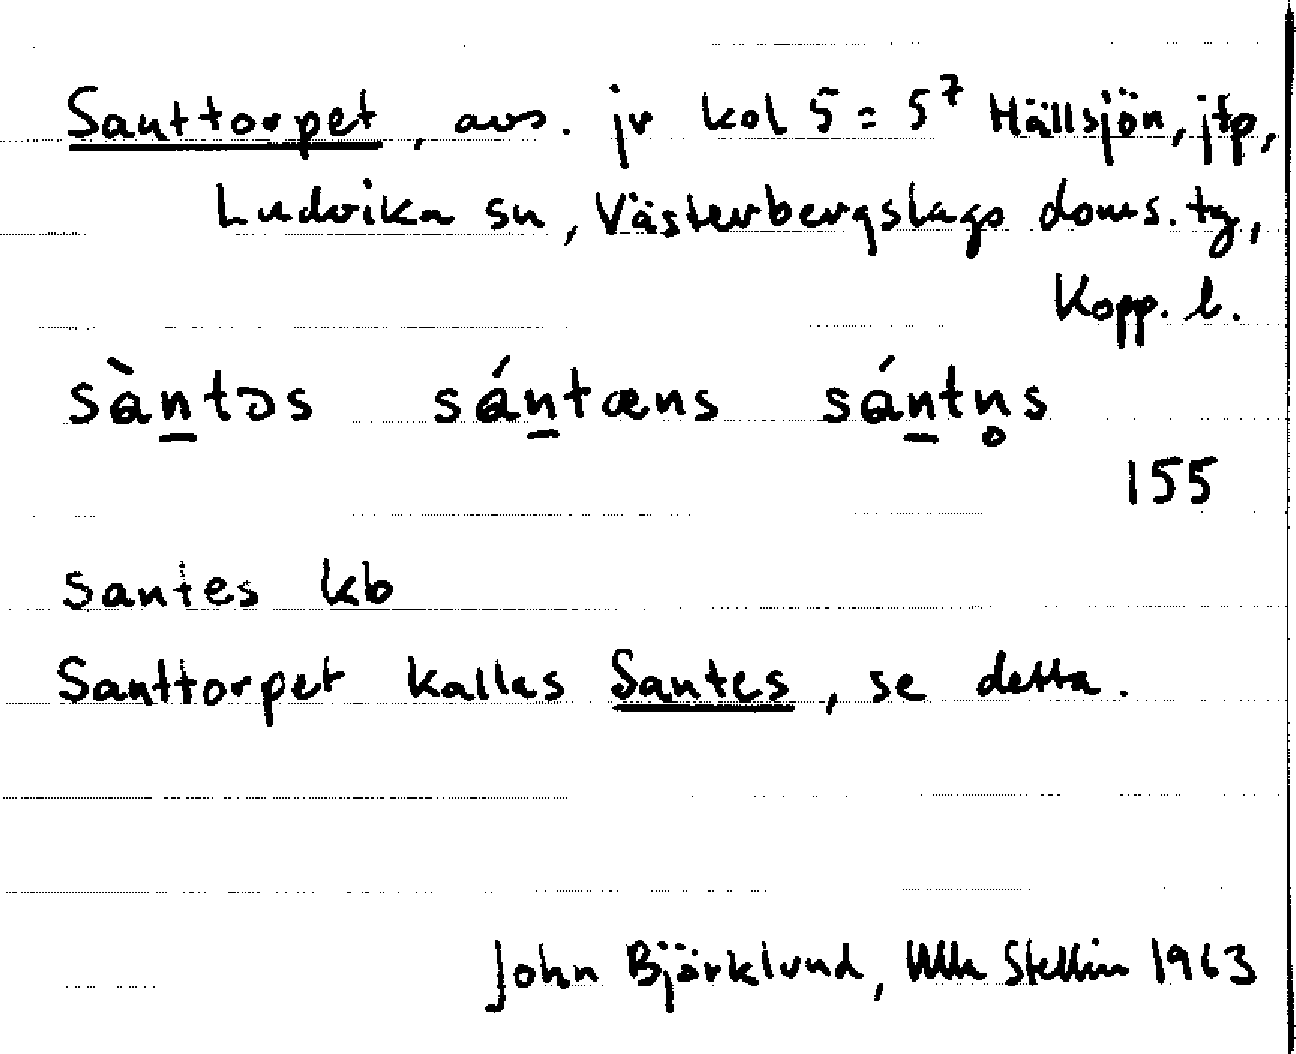 Santtorpet, avs. jr kol 5 = 5⁷ Hällsjön, jtp,
Ludvika sn, Västerbergslags doms. tg,
Kopp. l.
sàn̲təs sán̲tæns sán̲tn̥s
155
Santes kb
Santtorpet kallas Santes, se detta.
John Björklund, Ulla Stellin 1963